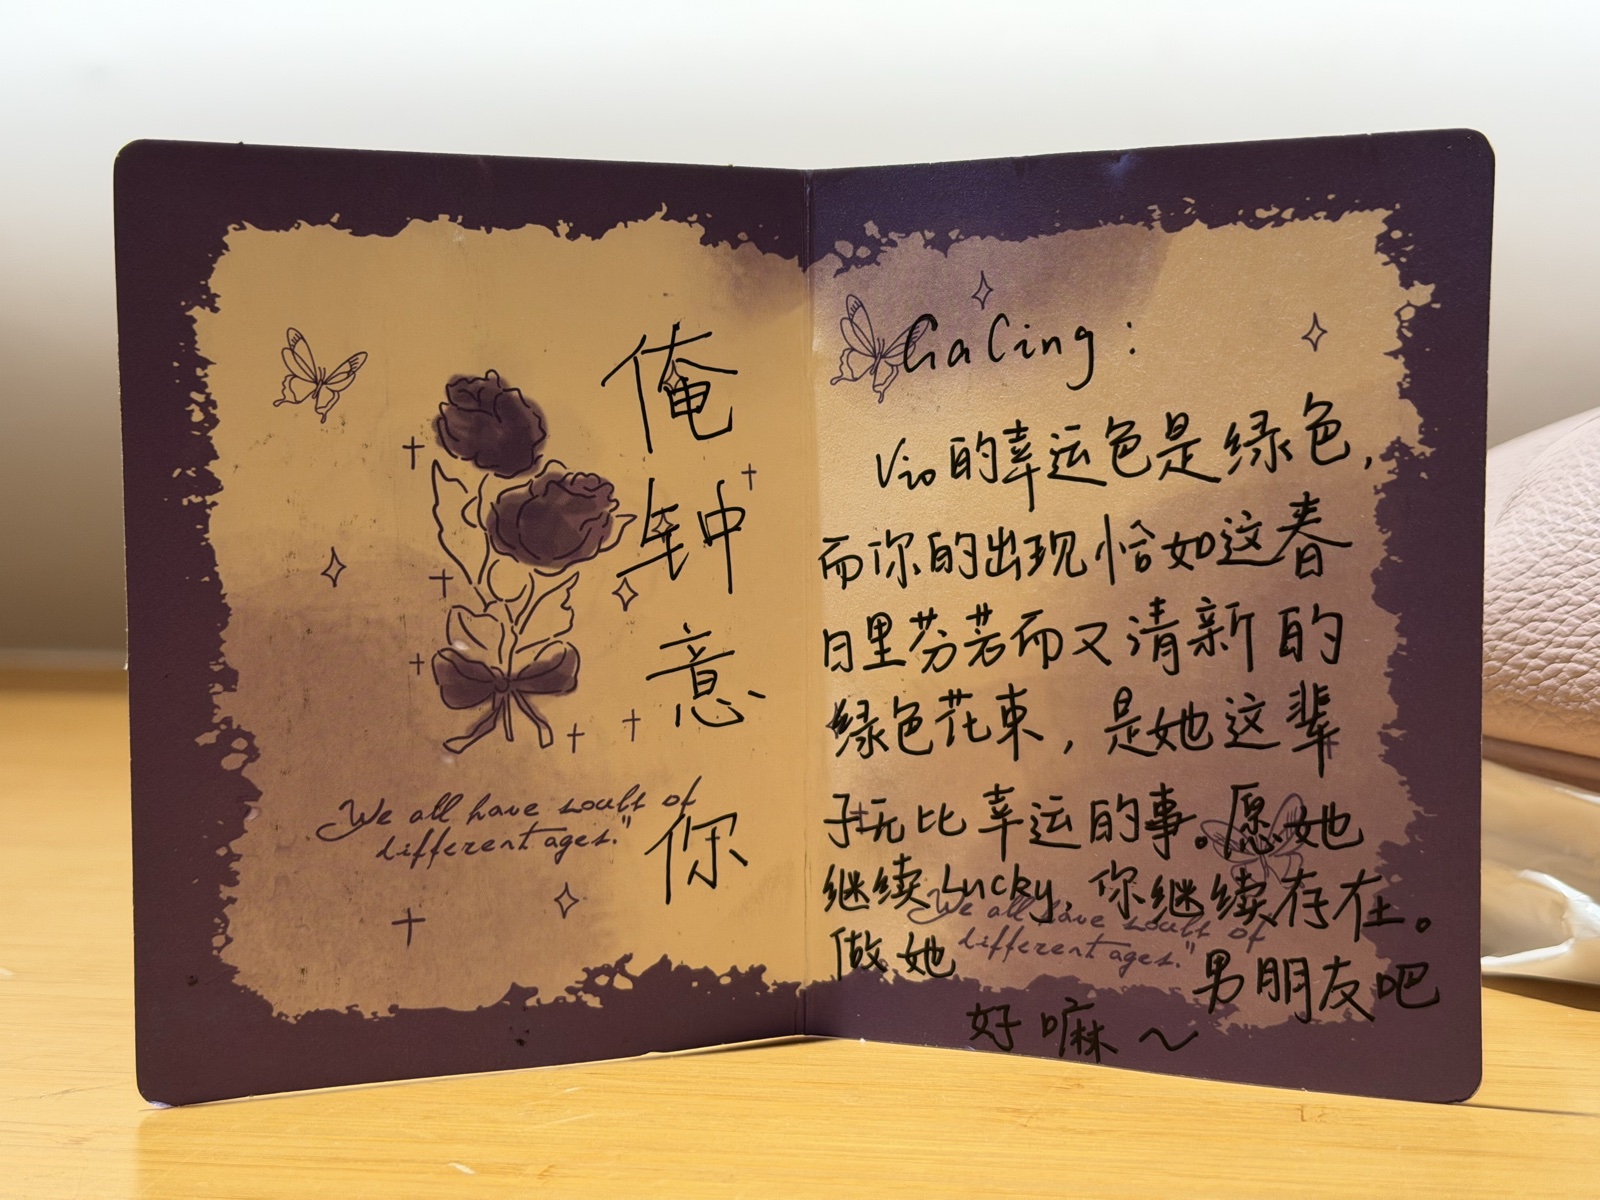 俺
钟
意
你
"We all have soults of
different ages."
GaCing：
Vio的幸运色是绿色，
而你的出现恰如这春
日里芬芳而又清新的
绿色花束，是她这辈
子玩比幸运的事。愿她
继续Lucky，你继续存在。
做她男朋友吧
好嘛～
"We all have soults of
different ages."